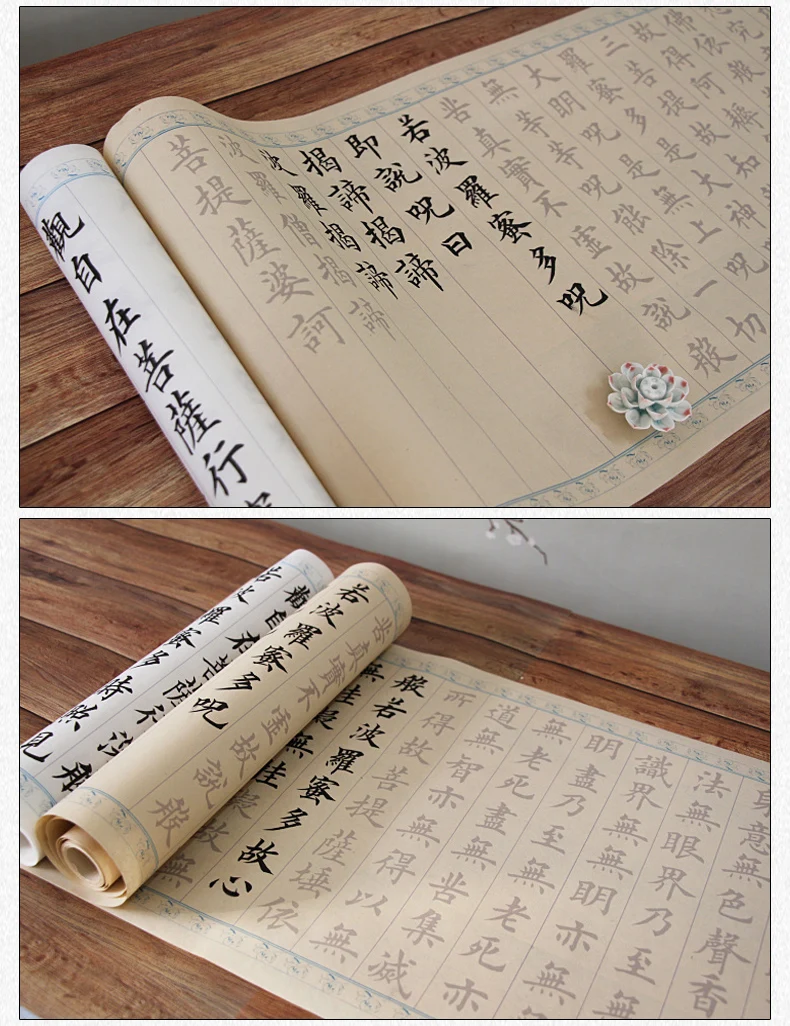 究
佛依般
故得阿耨
三菩提故知
羅蜜多是大神咒
大明咒是無上咒
無等等咒能除一切
苦真實不虛故說般
若波羅蜜多咒
即說咒曰
揭諦揭諦
波羅揭諦
波羅僧揭諦
菩提薩婆訶
觀自在菩薩行
身意無色聲香
法無眼界乃至無
識界無無明亦無
明盡乃至無老死亦
無老死盡無苦集滅
道無智亦無得以無
所得故菩提薩埵依
般若波羅蜜多故心
無罣礙無罣礙故無
苦真實不虛故說般
若波羅蜜多咒
觀自在菩薩行深般
若波羅蜜多時照見